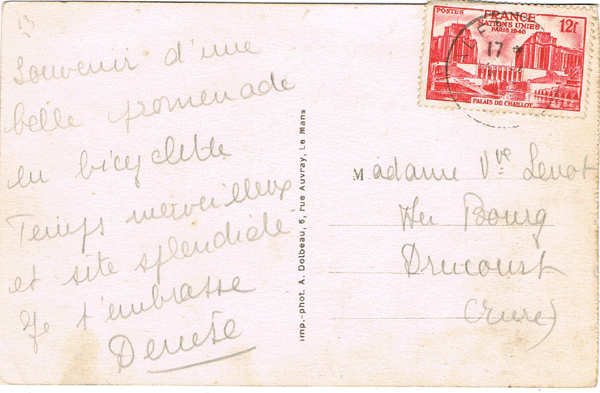 13
Souvenir d'une
belle promenade
en bicyclette
Temps merveilleux
et site splendide
Je t'embrasse
Denise
Imp.-phot. A. Dolbeau, 5, rue Auvray, Le Mans
POSTES FRANCE 12f
NATIONS UNIES
PARIS 1948
17 *
PALAIS DE CHAILLOT
Madame Vve Lenot
Au Bourg
Drucourt
(Eure)